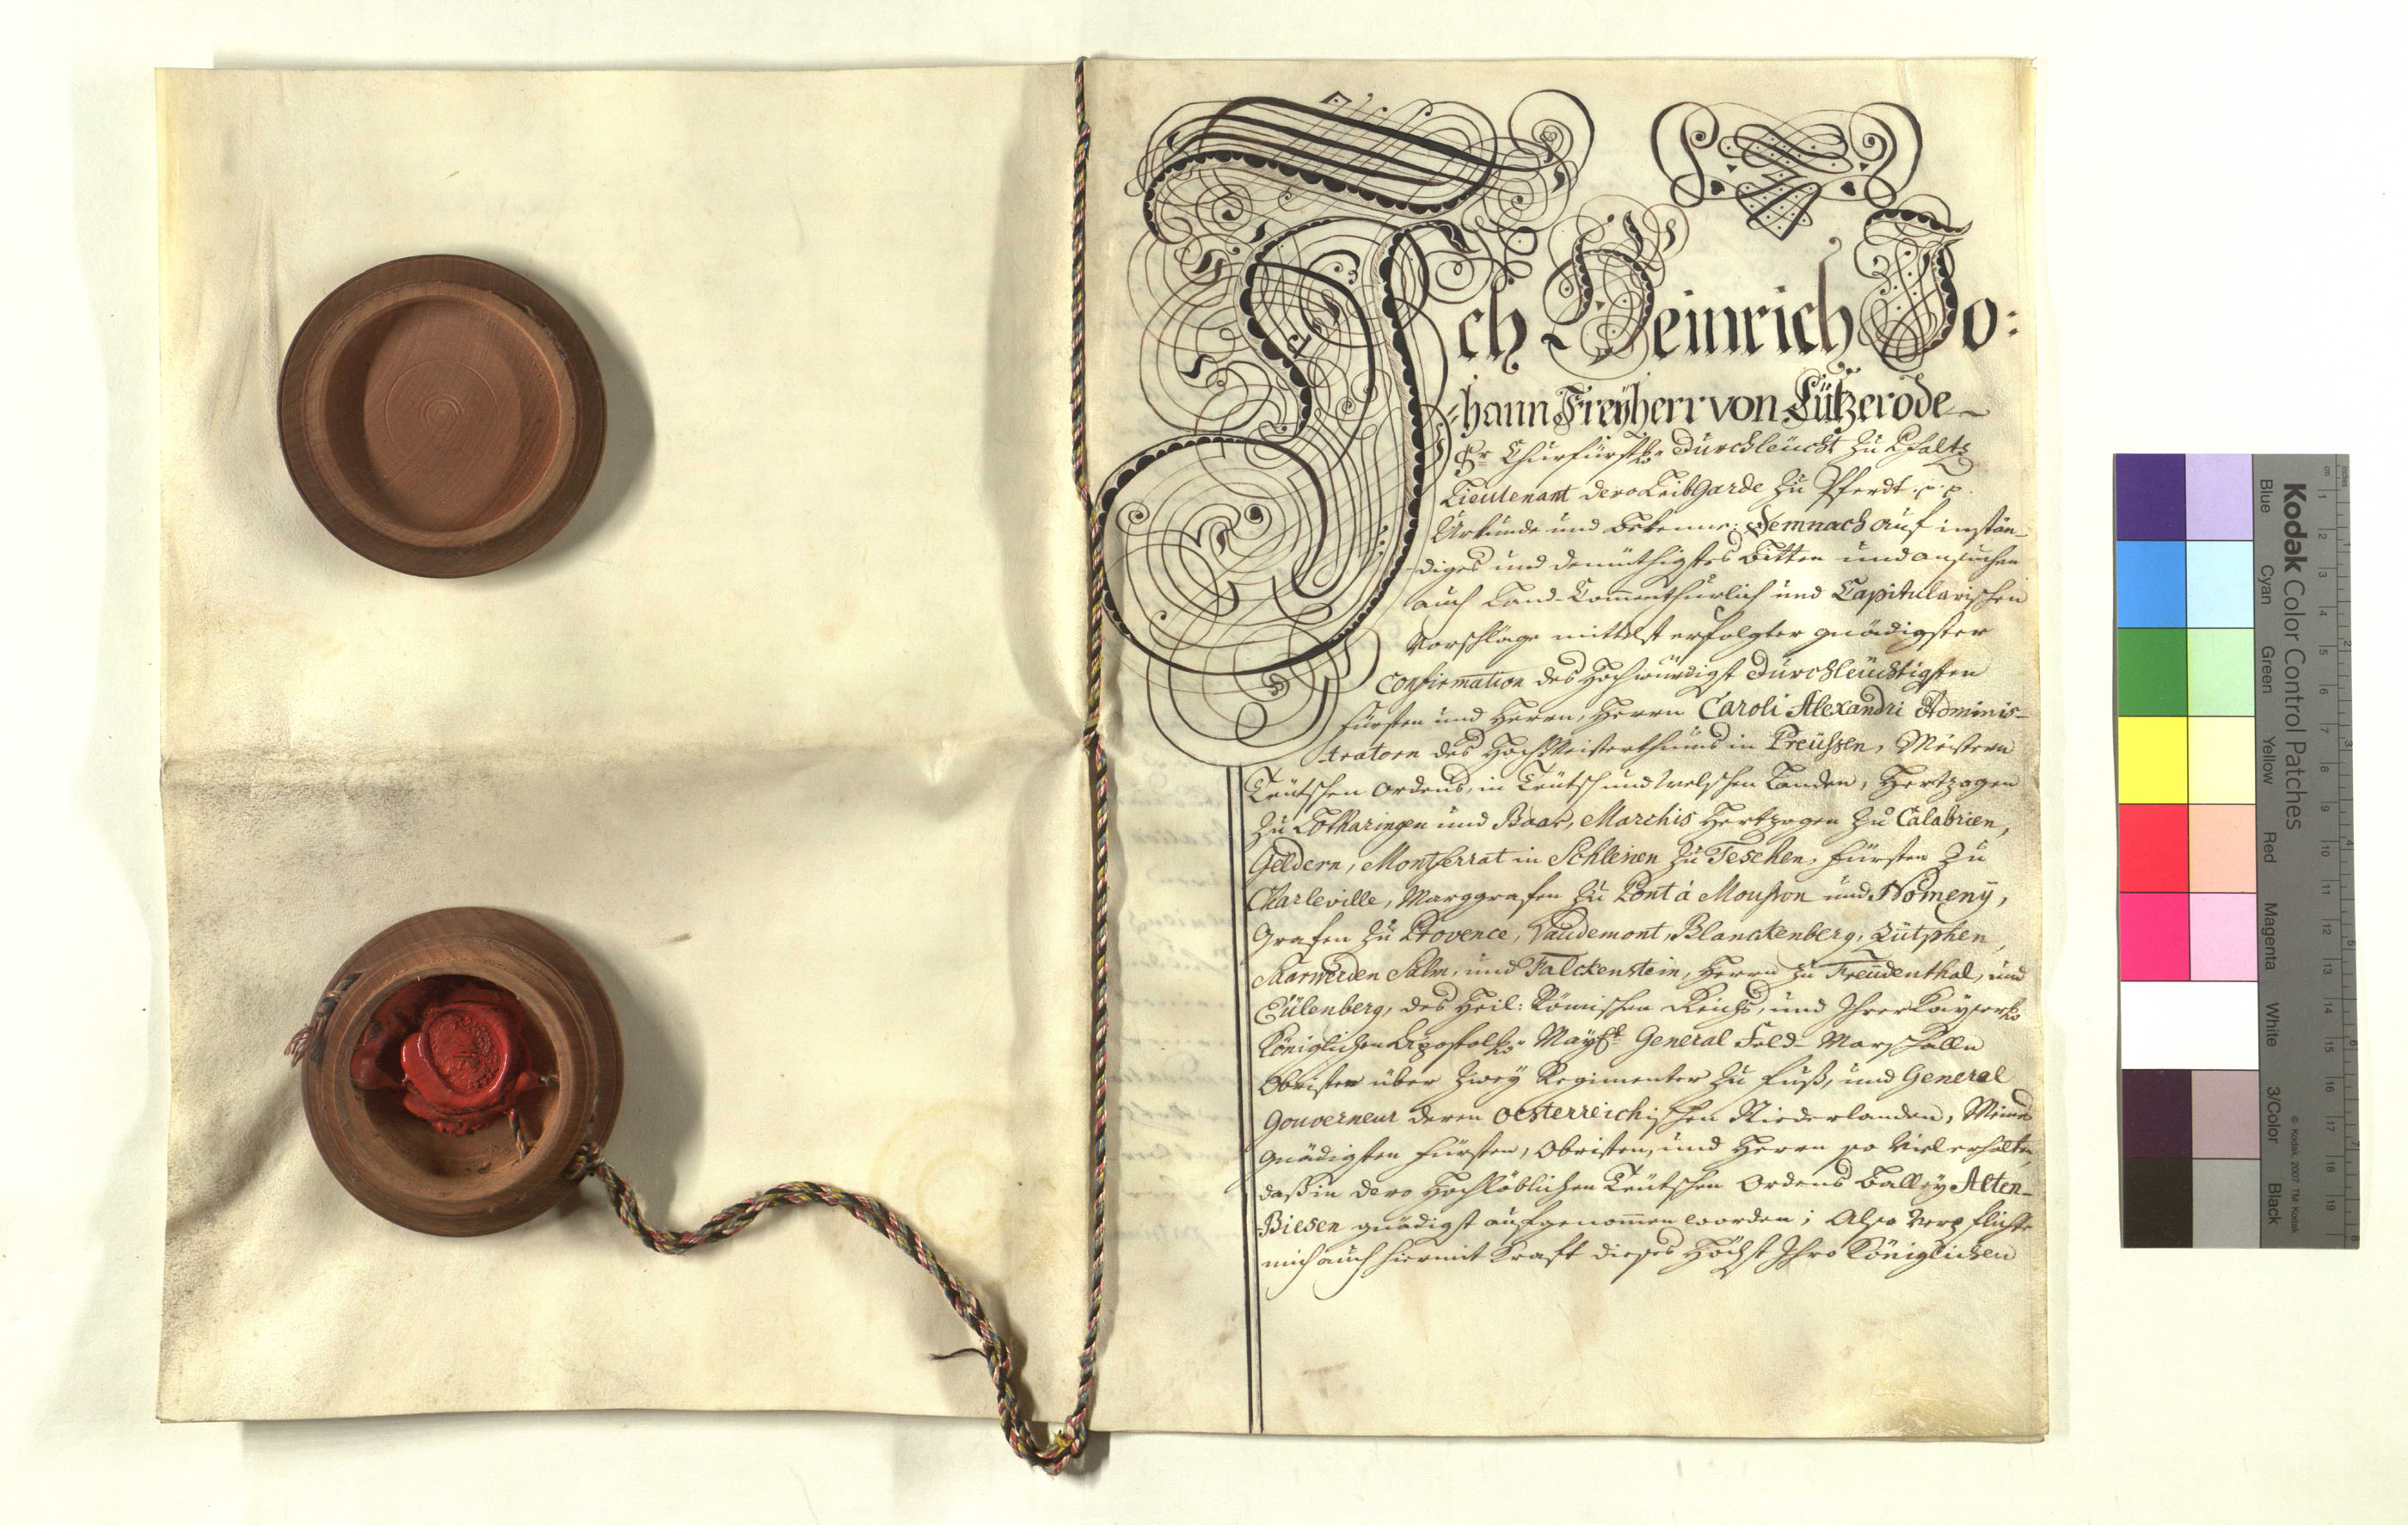 Ich Heinrich Jo:
=hann Freÿherr von Lützerode
Sr Churfürstl. Dürchleücht zu Pfaltz
Lieutenant dero LeibGarde zu Pferdt. p. p.
Urkunde und Bekenne: Demnach auf instän-
diges und demüthigstes Bitten und ansuchen
auch Land-Commenthurlich und Capitularischen
Vorschlage mittelst erfolgter gnädigster
Confirmation des Hochwürdigst Dürchleüchtigsten
Fürsten und Herrn, Herrn Caroli Alexandri Adminis-
tratorn des HochMeisterthums in Preüssen, Meistern
Teütschen Ordens, in Teütsch und Welschen Landen, Hertzogen
Zu Lotharingen und Baar, Marchis Hertzogen Zu Calabrien,
Geldern, Montferrat in Schlesien Zu Teschen, Fürsten Zu
Charleville, Marggrafen Zu Pont à Mousson und Nomenÿ,
Grafen Zu Provence, Vaudemont, Blanckenberg, Zütphen,
Saarwerden Salm, und Falckenstein, Herrn zu Freüdenthal, und
Eülenberg, des Heil: Römischen Reichs, und Ihrer Kayserl.
Königlichen Apostol. Mayst. General Feld-Marschalln
Obristen über Zweÿ Regimenter Zu Fuß, und General
Gouverneur deren Oesterreichischen Niederlanden, Meines
Gnädigsten Fürsten, Obristen, und Herrn so Viel erhalten,
daß in dero Hochlöblichen Teütschen Ordens Balley Alten-
Biesen gnädigst aufgenommen worden; Also Verpflichte
mich auch hiermit Kraft dieses Höchst Ihro Königlichen
Kodak Color Control Patches
Blue Cyan Green Yellow Red Magenta White 3/Color Black
© Kodak, 2007 TM: Kodak
cm 1 2 4 5 6 7 8 9 10 11 12 13 14 15 16 17 18 19
inches 1 2 3 4 5 6 7 8